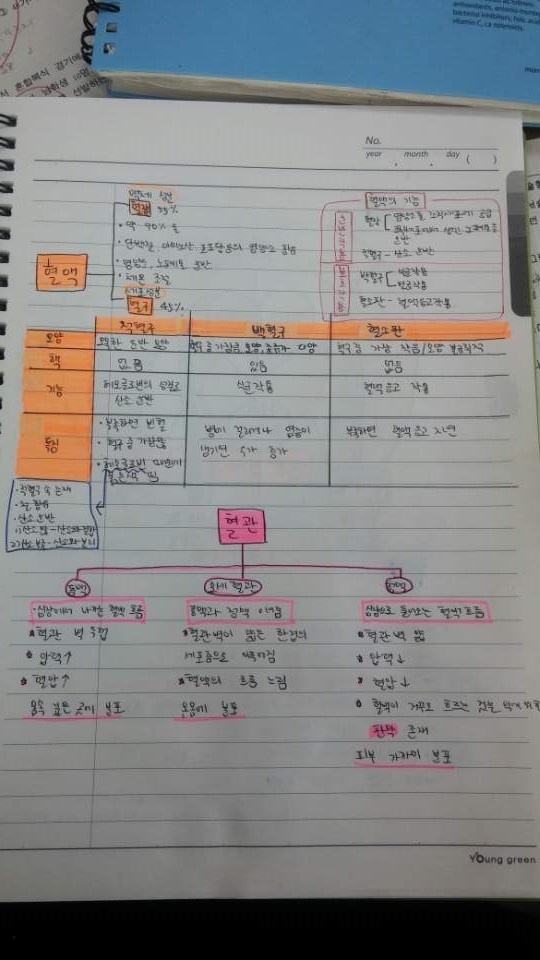 antioxidants, antonio montero
bacterial inhibitors, folic acid
vitamin C, ca rotenoids.
No.
year . month . day ( )
혈액
액체 성분
혈장 55%
· 약 90% 물
· 단백질, 아미노산 포도당등의 영양소
· 영양분, 노폐물 운반
· 체온 조절
세포성분
혈구 45%
혈액의 기능
혈장
영양소를 조직세포에 공급
운반
적혈구 - 산소 운반
백혈구
식균작용
면역작용
혈소판 - 혈액응고작용
적혈구 백혈구 혈소판
모양 오목한 원반 모양 혈구 중 가장큼, 모양, 종류가 다양 혈구 중 가장 작음/모양 불규칙적
핵 없음 있음 없음
기능 헤모글로빈의 작용으로 산소 운반 식균작용 혈액 응고 작용
특징 · 부족하면 빈혈 병에 걸리거나 염증이 부족하면 혈액 응고 지연
· 혈구 중 가장많음 생기면 수가 증가
· 헤모글로빈 때문에
붉은색 띔
· 적혈구 속 존재
· 철 함유
· 산소 운반
1) 산소 많 - 산소와 결합
2) 산소 부족 - 산소와 분리
혈관
동맥 모세 혈관 정맥
· 심장에서 나가는 혈액 흐름
혈관 벽 두껍
압력↑
혈압↑
몸속 깊은 곳에 분포
동맥과 정맥 이어줌
혈관벽이 얇은 한겹의
세포층으로 이루어짐
혈액의 흐름 느림
온몸에 분포
심장으로 들어오는 혈액 흐름
혈관 벽 얇
압력↓
혈압↓
혈액이 거꾸로 흐르는 것을 막기 위해
판막 존재
피부 가까이 분포
Young green